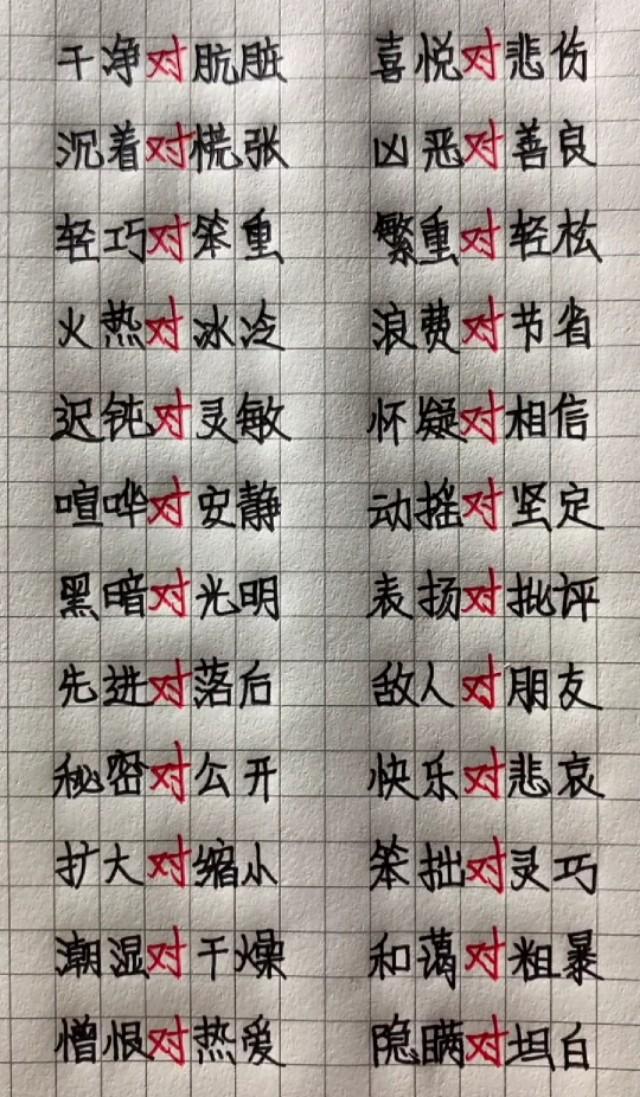 干净对肮脏 喜悦对悲伤
沉着对慌张 凶恶对善良
轻巧对笨重 繁重对轻松
火热对冰冷 浪费对节省
迟钝对灵敏 怀疑对相信
喧哗对安静 动摇对坚定
黑暗对光明 表扬对批评
先进对落后 敌人对朋友
秘密对公开 快乐对悲哀
扩大对缩小 笨拙对灵巧
潮湿对干燥 和蔼对粗暴
憎恨对热爱 隐瞒对坦白